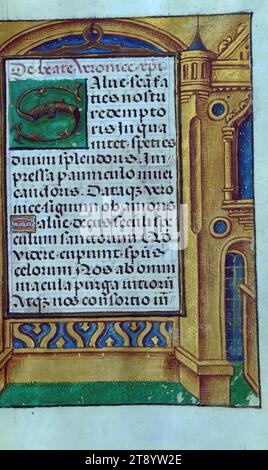 De beate veronice xpi
Salue sca fa
ties nostre
redempto
ris In qua
nitet speties
diuini splendoris. Im
pressa paniculo niuei
candoris. Dataqꝫ vero
nice signum ob amoris
Salue decus seculi spe
culum sanctorum Qđ
videre cupiunt spūs
celorum Nos ab omni
macula purga vitiorū
Atqꝫ nos consortio
alamy - 2T81YW2E